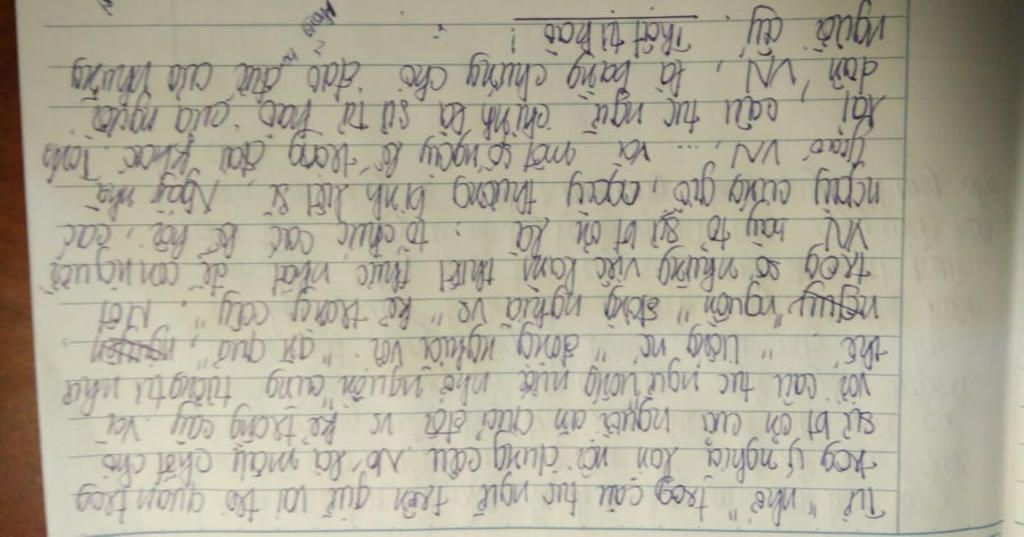 Từ "nhớ" trog câu tục ngữ trên giữ vai trò quan trog
trog ý nghĩa lẫn nội dung câu. Nó là mấu chốt cho
sự bt ơn của người ăn chứ đối vs kẻ trồng cây. Và
với câu tục ngữ uống nước nhớ nguồn cũng tương tự như
thế. "Uống nc" đồng nghĩa với "ăn quả",
"nguồn" đồng nghĩa vs "kẻ trồng cây". Một
trog số những việc làm thiết thực nhất để con người
VN bày tỏ sự bt ơn là: tổ chức các lễ hội, các
ngày cúng giỗ, ngày thương binh liệt sĩ, Ngày nhà
giáo VN,... và một số ngày lễ trong đại khác. Tóm
lại, câu tục ngữ chính là sự tự hào của người
dân VN, là bằng chứng cho đạo đức của những
người ấy. Thật tự hào!